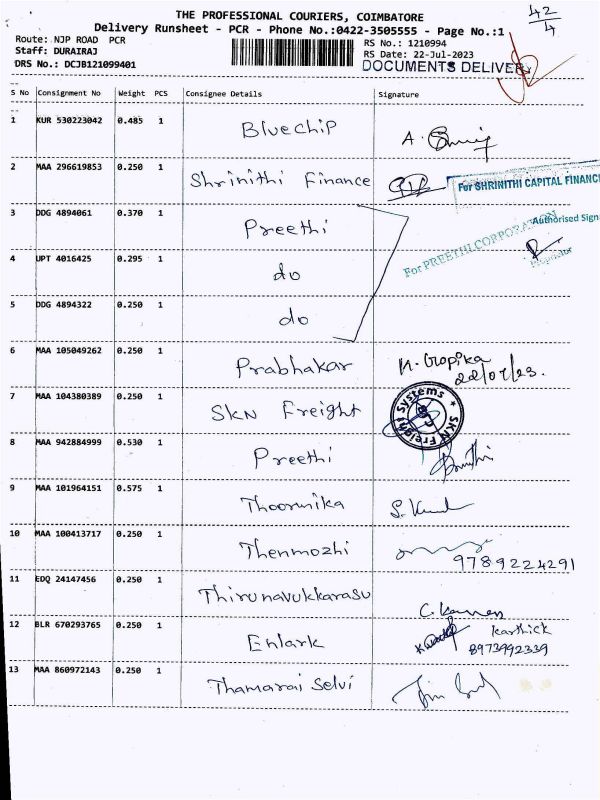 THE PROFESSIONAL COURIERS, COIMBATORE
42/4
Delivery Runsheet - PCR - Phone No.:0422-3505555 - Page No.:1
Route: NJP ROAD PCR
RS No.: 1210994
Staff: DURAIRAJ
RS Date: 22-Jul-2023
DRS No.: DCJB121099401
DOCUMENTS DELIVER
S No Consignment No Weight PCS Consignee Details Signature
1 KUR 530223042 0.485 1 Bluechip A.
2 MAA 296619853 0.250 1 Shrinithi Finance
For SHRINITHI CAPITAL FINANC
Authorised Sign
3 DDG 4894061 0.370 1 Preethi
For PREETHI CORPORATION
Proprietor
4 UPT 4016425 0.295 1 do
5 DDG 4894322 0.250 1 do
6 MAA 105049262 0.250 1 Prabhakar N. Gropika
22/07/23.
7 MAA 104380389 0.250 1 SKN Freight
SKN Freight Systems
8 MAA 942884999 0.530 1 Preethi
9 MAA 101964151 0.575 1 Thoormika
10 MAA 100413717 0.250 1 Thenmozhi
9789224291
11 EDQ 24147456 0.250 1 Thirunavukkarasu
12 BLR 670293765 0.250 1 Enlark Karthick
8973992339
13 MAA 860972143 0.250 1 Thamarai Selvi